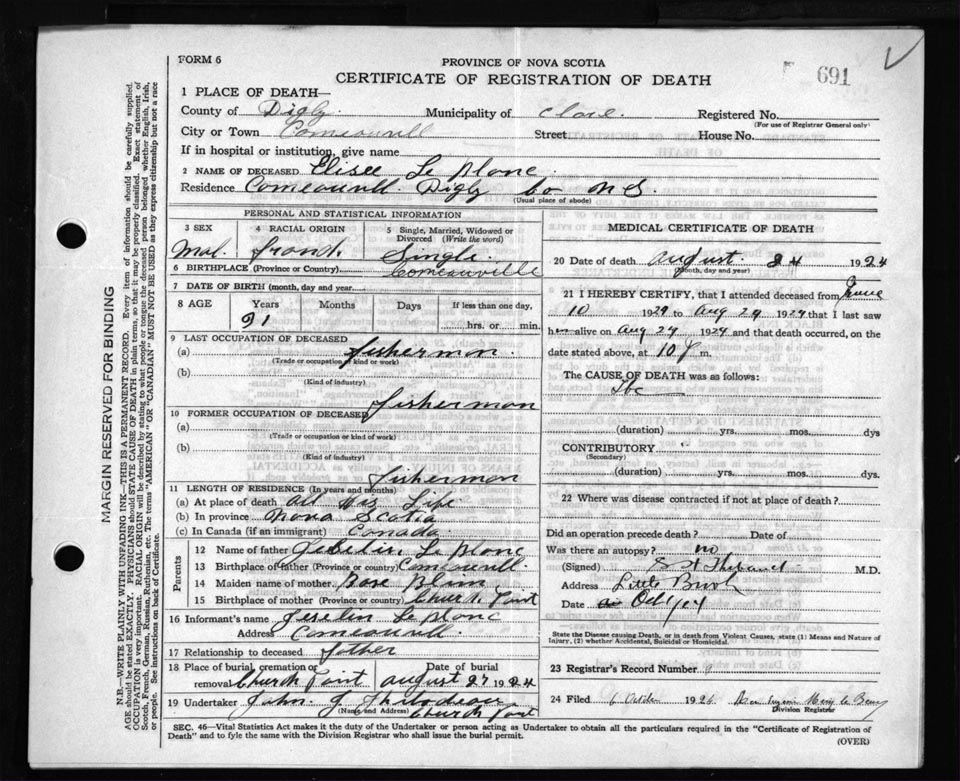 FORM 6
PROVINCE OF NOVA SCOTIA
CERTIFICATE OF REGISTRATION OF DEATH
691
1 PLACE OF DEATH—
County of Digby Municipality of Clare Registered No.
(For use of Registrar General only)
City or Town Comeauvill Street House No.
If in hospital or institution, give name
2 NAME OF DECEASED Elisee Le Blanc
Residence Comeauvill Digby Co N S.
(Usual place of abode)
PERSONAL AND STATISTICAL INFORMATION
3 SEX 4 RACIAL ORIGIN 5 Single, Married, Widowed or Divorced (Write the word)
Mal. french Single
6 BIRTHPLACE (Province or Country) Comeauville
7 DATE OF BIRTH (month, day and year)
8 AGE Years Months Days If less than one day,
21 hrs. or min.
9 LAST OCCUPATION OF DECEASED
(a) fisherman
(Trade or occupation or kind or work)
(b)
(Kind of industry)
10 FORMER OCCUPATION OF DECEASED fisherman
(a)
(Trade or occupation or kind of work)
(b)
(Kind of industry)
fisherman
11 LENGTH OF RESIDENCE (In years and months)
(a) At place of death all his Life
(b) In province Nova Scotia
(c) In Canada (if an immigrant) Canada
Parents
12 Name of father Le Blanc
13 Birthplace of father (Province or Country) Comeauvill
14 Maiden name of mother Rose
15 Birthplace of mother (Province or country) Church Point
16 Informant's name Le Blanc
Address Comeauvill
17 Relationship to deceased father
18 Place of burial, cremation or removal Church Point Date of burial august 27 1924
19 Undertaker John J Thibodeau
(Name and Address) Church Point
MEDICAL CERTIFICATE OF DEATH
20 Date of death august 24 1924
(Month, day and year)
21 I HEREBY CERTIFY, that I attended deceased from June
10 1924 to Aug 24 1924 that I last saw
him alive on Aug 24 1924 and that death occurred, on the
date stated above, at 10 P m.
The CAUSE OF DEATH was as follows:
Tbc
(duration) yrs. mos. dys
CONTRIBUTORY
(Secondary)
(duration) yrs. mos. dys.
22 Where was disease contracted if not at place of death?
Did an operation precede death? Date of
Was there an autopsy? no
(Signed) M.D.
Address Little Brook
Date Oct 1/24
State the Disease causing Death, or in death from Violent Causes, state (1) Means and Nature of
Injury, (2) whether Accidental, Suicidal or Homicidal.
23 Registrar's Record Number
24 Filed 1924
Division Registrar
SEC. 46—Vital Statistics Act makes it the duty of the Undertaker or person acting as Undertaker to obtain all the particulars required in the "Certificate of Registration of
Death" and to fyle the same with the Division Registrar who shall issue the burial permit.
(OVER)
MARGIN RESERVED FOR BINDING
N.B.—WRITE PLAINLY WITH UNFADING INK—THIS IS A PERMANENT RECORD. Every item of information should be carefully supplied.
AGE should be stated EXACTLY. PHYSICIANS should STATE CAUSE OF DEATH in plain terms, so that it may be properly classified. Exact statement of
OCCUPATION is very important. RACIAL ORIGIN will be described by stating to what people or tongue the deceased person belonged whether English, Irish,
Scotch, French, German, Russian, Ruthenian, etc. The terms "AMERICAN" OR "CANADIAN" MUST NOT BE USED as they express citizenship but not a race
or people. See instructions on back of Certificate.